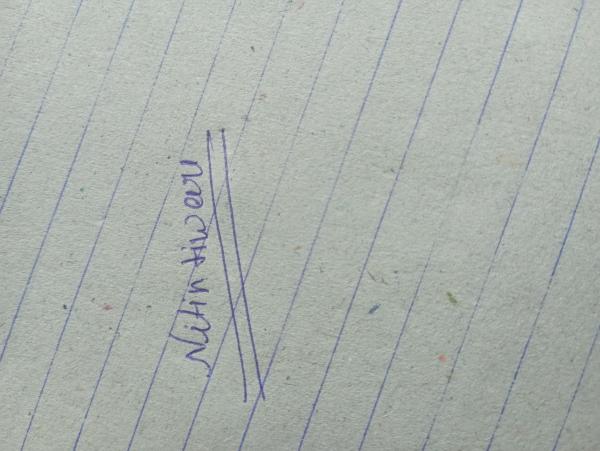 Nitin tiwari